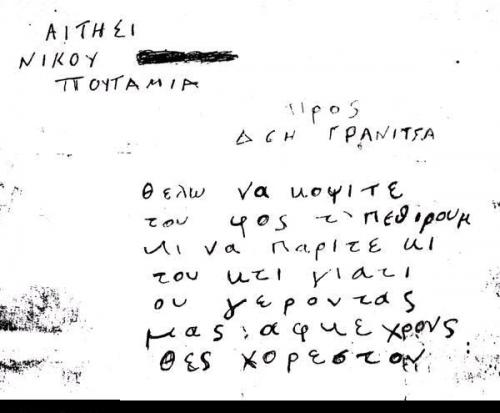 ΑΙΤΗΣΙ
ΝΙΚΟΥ
ΠΟΥΤΑΜΙΑ
Προς
ΔΕΗ ΓΡΑΝΙΤΣΑ
θελω να κοψιτε
του φος τ πεθιρουμ
κι να παριτε κι
του κτι γιατι
ου γεροντας
μας αφκε χρους
θες χορεστον